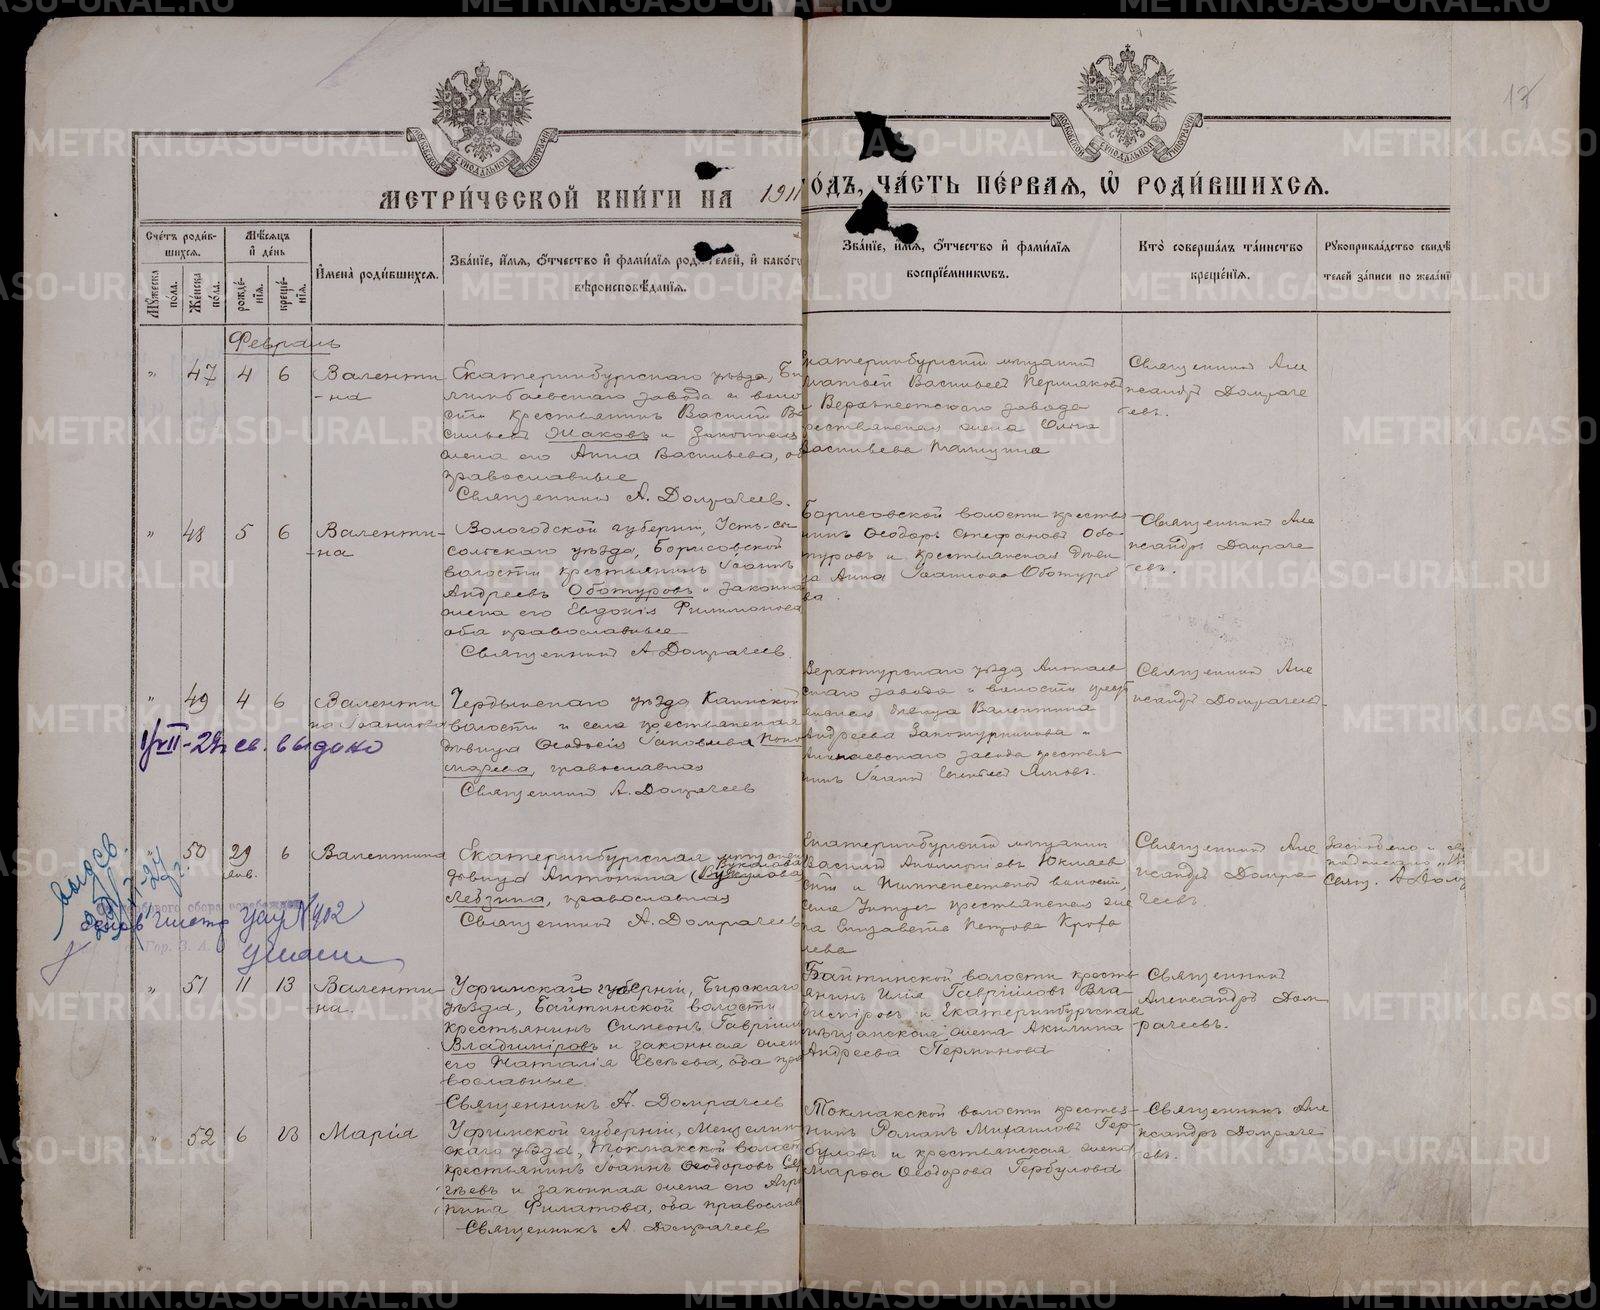 МЕТРИ́ЧЕСКОЙ КНИ́ГИ НА 1911 ГО́ДЪ, ЧА́СТЬ ПЕ́РВАЯ, Ѡ РОДИ́ВШИХСЯ.
Сче́тъ роди́в-
шихся.
Му́жеска по́ла.
Же́нска по́ла.
Мѣ́сяцъ
и҆ де́нь
рожде́-
нїя.
креще́-
нїя.
И҆мена̀ роди́вшихся.
Зва́нїе, и҆́мя, ѻ҆́тчество и҆ фами́лїя роди́телей, и҆ како́гѡ
вѣроисповѣ́данїя.
Зва́нїе, и҆́мя, ѻ҆́тчество и҆ фами́лїя
воспрїе́мниковъ.
Кто̀ соверша́лъ та́инство
креще́нїя.
Рꙋкоприкла́дство свидѣ́
телей за́писи по жела́нї
Февраль
" 47 4 6 Валенти
-на
Екатеринбургскаго уѣзда, Би
лимбаевскаго завода и воло
сти крестьянинъ Василій Ва
сильевъ Жаковъ и законная
жена его Анна Васильева, об
православные
Священникъ А. Домрачеев.
Екатеринбургскій мѣщанинъ
Матѳей Васильевъ Першаковъ
и Верхъисетскаго завода
крестьянская жена Ольга
Васильева
Священникъ Але
ксандръ Домраче
евъ.
" 48 5 6 Валенти-
-на
Вологодской губерніи, Усть-сы
сольскаго уѣзда, Борисовской
волости крестьянинъ Іоаннъ
Андреевъ Оботуровъ и законна
жена его Евдокія Филимонова
оба православные
Священникъ А Домрачеев.
Борисовской волости кресть
нинъ Ѳеодоръ Стефановъ Обо-
туровъ и крестьянская дѣви
ца Анна Іоаннова Оботуро
ва
Священникъ Але
ксандръ Домраче
евъ.
" 49 4 6 Валенти
на Іоаннова
Чердынскаго уѣзда
волости и села крестьянская
дѣвица Ѳеодосія Іаковлева Поно
марева, православная
Священникъ А. Домрачеев
Верхотурскаго уѣзда Алапаев
скаго завода и волости
дѣвица Валентина
Андреева и
Алапаевскаго завода крестья
нинъ Іоаннъ
Священникъ Але
ксандръ Домрачеевъ
-27г св. выдано
" 50 29 6 Валентина
янв.
Екатеринбургская
довица Антонина
православная
Священникъ А. Домрачеев
Екатеринбургскій мѣщанинъ
Василій
и волости,
села крестьянская же
на Елизавета Петрова
лева
Священникъ Але
ксандръ Домра
чеевъ.
Свящ. А Дом
" 51 11 13 Валенти-
-на.
Уфимской губерніи, Бирскаго
уѣзда, Байтинской волости
крестьянинъ Симеонъ Гавріил
Владиміровъ и законная жена
его Наталія Евсѣева, оба пра
вославные.
Священникъ А. Домрачеев
Байтинской волости кресть
янинъ Илія Гавріиловъ Вла-
диміровъ и Екатеринбургская
мѣщанская жена Акилина
Андреева Перминова
Священникъ
Александръ Дом
рачеевъ.
" 52 6 13 Марія
Уфимской губерніи, Мензелин
скаго уѣзда, Токмакской волост
крестьянинъ Іоаннъ Ѳеодоровъ Сер
гѣевъ и законная жена его Агри
пина Филатова, оба православ
Священникъ А. Домрачеев
Токмакской волости кресть
нинъ Романъ Михаиловъ Гер-
буловъ и крестьянская жена
Марѳа Ѳеодорова Гербулова
Священникъ Але
ксандръ Домраче
евъ.
METRIKI.GASO-URAL.RU